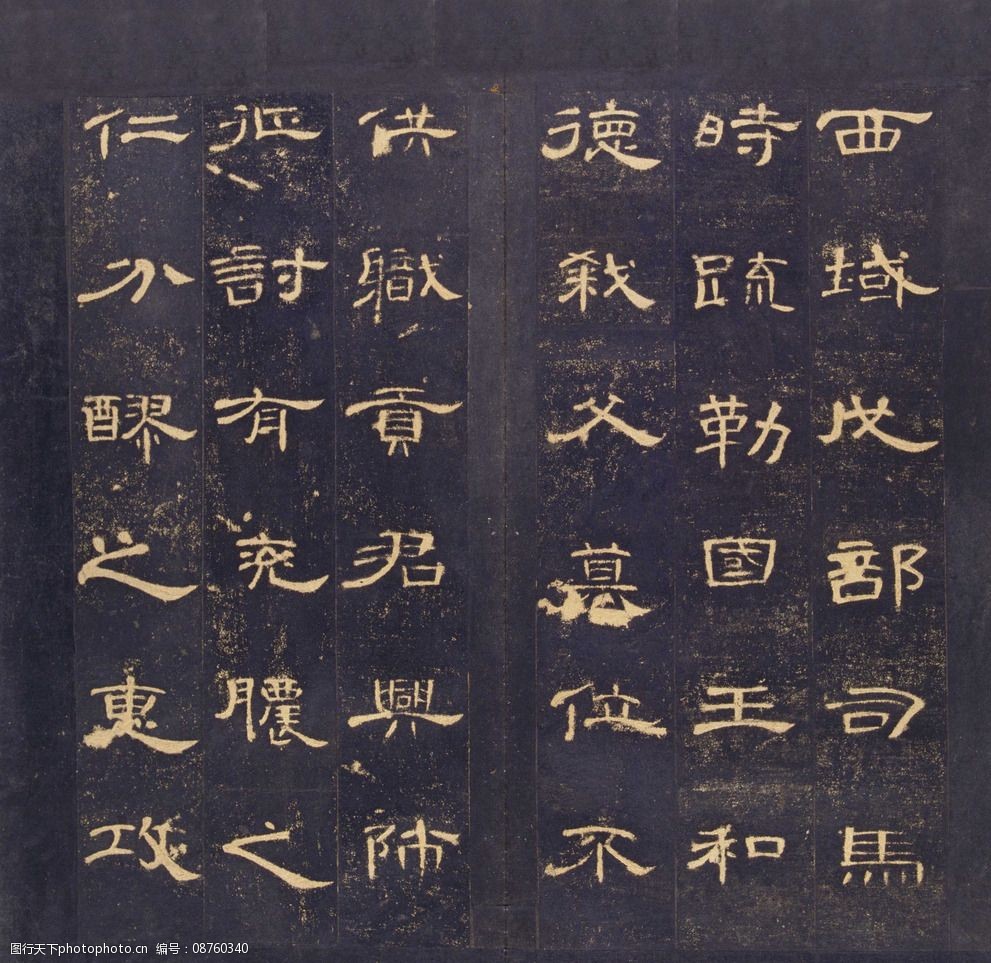 西域戊部司馬
時疏勒國王和
德弒父篡位不
供職貢君興師
征討有兗膿之
仁分醪之惠攻
图行天下photophoto.cn 编号：08760340